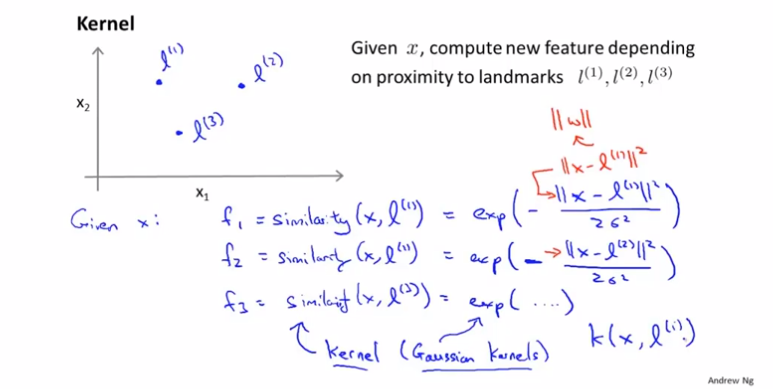 Kernel
l⁽¹⁾
l⁽²⁾
l⁽³⁾
x₂
x₁
Given x, compute new feature depending
on proximity to landmarks l⁽¹⁾, l⁽²⁾, l⁽³⁾
||w||
||x - l⁽¹⁾||²
Given x: f₁ = similarity(x, l⁽¹⁾) = exp(- ||x - l⁽¹⁾||² / 2σ²)
f₂ = similarity(x, l⁽²⁾) = exp(- ||x - l⁽²⁾||² / 2σ²)
f₃ = similarity(x, l⁽³⁾) = exp(....)
kernel (Gaussian kernels) k(x, l⁽ⁱ⁾)
Andrew Ng